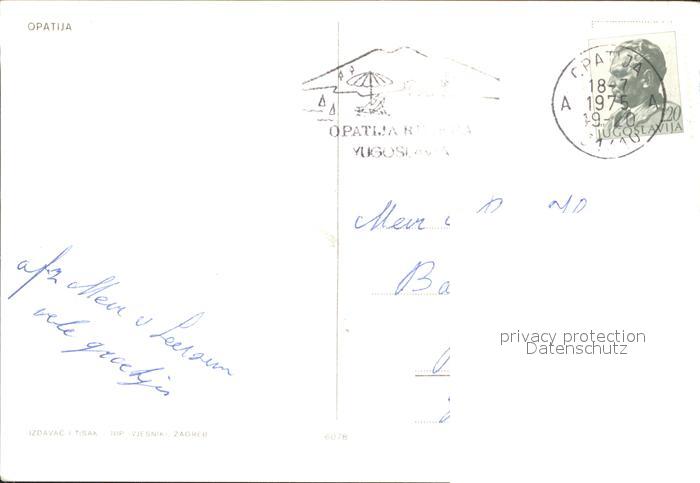 OPATIJA
OPATIJA
YUGOSLAVIA
OPATIJA
18-7
A 1975 A
19-20
JUGOSLAVIJA
Mevr
Ba
afz Mevr v Leersum
vele groetjes
privacy protection
Datenschutz
IZDAVAČ I TISAK NIP »VJESNIK«, ZAGREB
6078